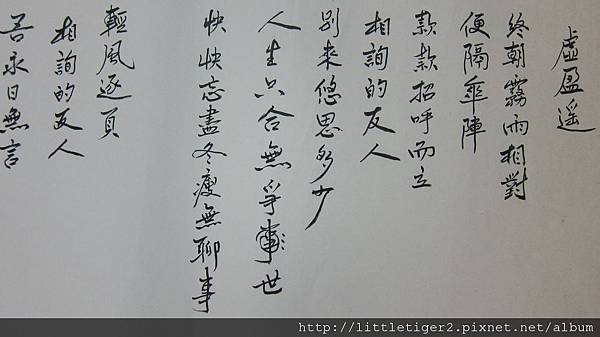 虛盈遥
終朝霧雨相對
便隔傘陣
款款招呼而立
相詢的友人
別來悠思多少
人生只合無爭事世
快快忘盡冬瘦無聊事
輕風逐頁
相詢的友人
吾永日無言
http://littletiger2.pixnet.net/album